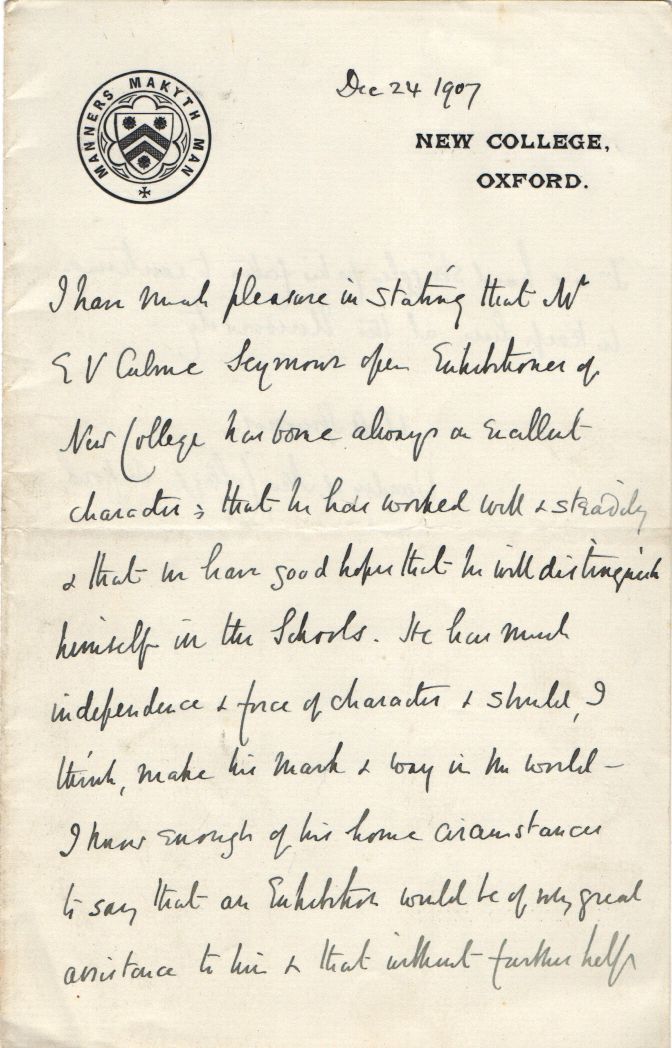 MANNERS MAKYTH MAN
Dec 24 1907
NEW COLLEGE,
OXFORD.
I have much pleasure in stating that Mr
E V Culme Seymour open Exhibitioner of
New College has borne always an excellent
character; that he has worked well & steadily
& that we have good hopes that he will distinguish
himself in the Schools. He has much
independence & force of character & should, I
think, make his mark & way in the world –
I know enough of his home circumstances
to say that an Exhibition would be of very great
assistance to him & that without further help